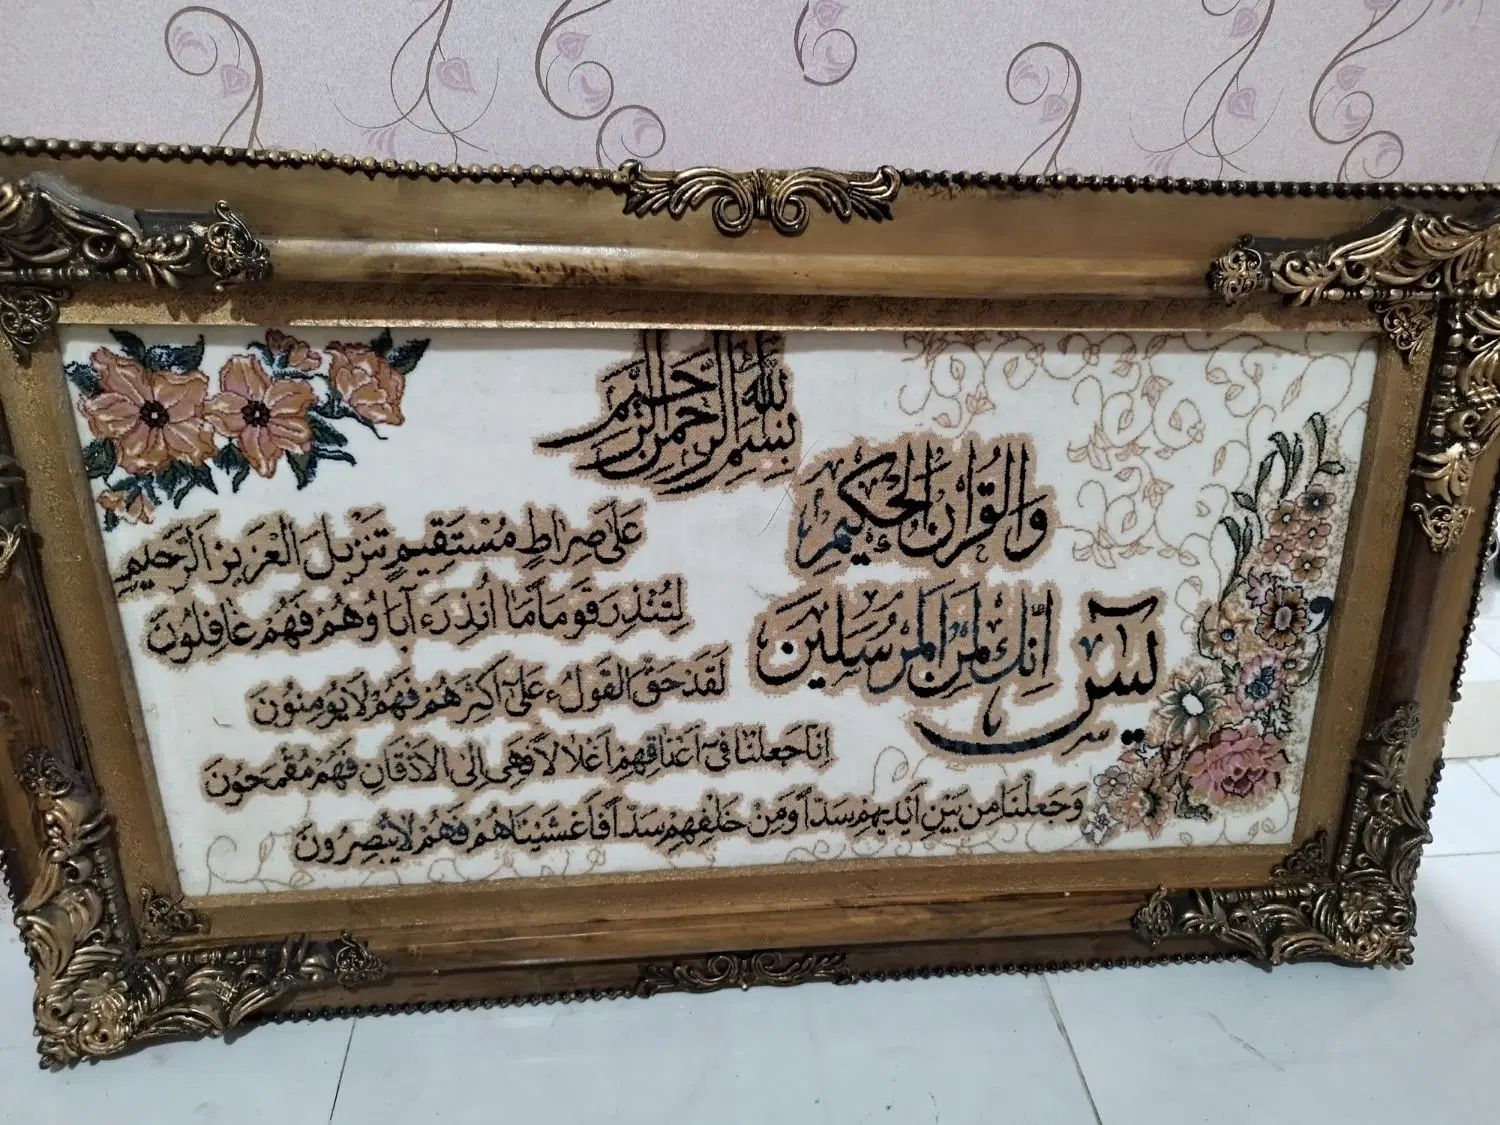 بِسْمِ اللهِ الرَّحْمنِ الرَّحيمِ
يسَ وَالْقُرْانِ الْحَكيمِ
اِنَّكَ لَمِنَ الْمُرْسَلينَ
عَلى صِراطٍ مُسْتَقيمٍ تَنْزيلَ الْعَزيزِ الرَّحيمِ
لِتُنْذِرَ قَوْماً مَا اُنْذِرَ ءَابَاؤُهُمْ فَهُمْ غافِلُونَ
لَقَدْ حَقَّ الْقَوْلُ عَلى اَكْثَرِهُمْ فَهُمْ لايُؤمِنُونَ
اِنّا جَعَلْنا فى اَعْناقِهِمْ اَغْلالاً فَهِىَ اِلَى الاَذْقانِ فَهُمْ مُقْمَحُونَ
وَ جَعَلْنا مِن بَيْنِ اَيْديهِمْ سَدّاً وَمِنْ خَلْفِهِمْ سَدّاً فَاَغْشَيْناهُمْ فَهُمْ لايُبْصِرُونَ